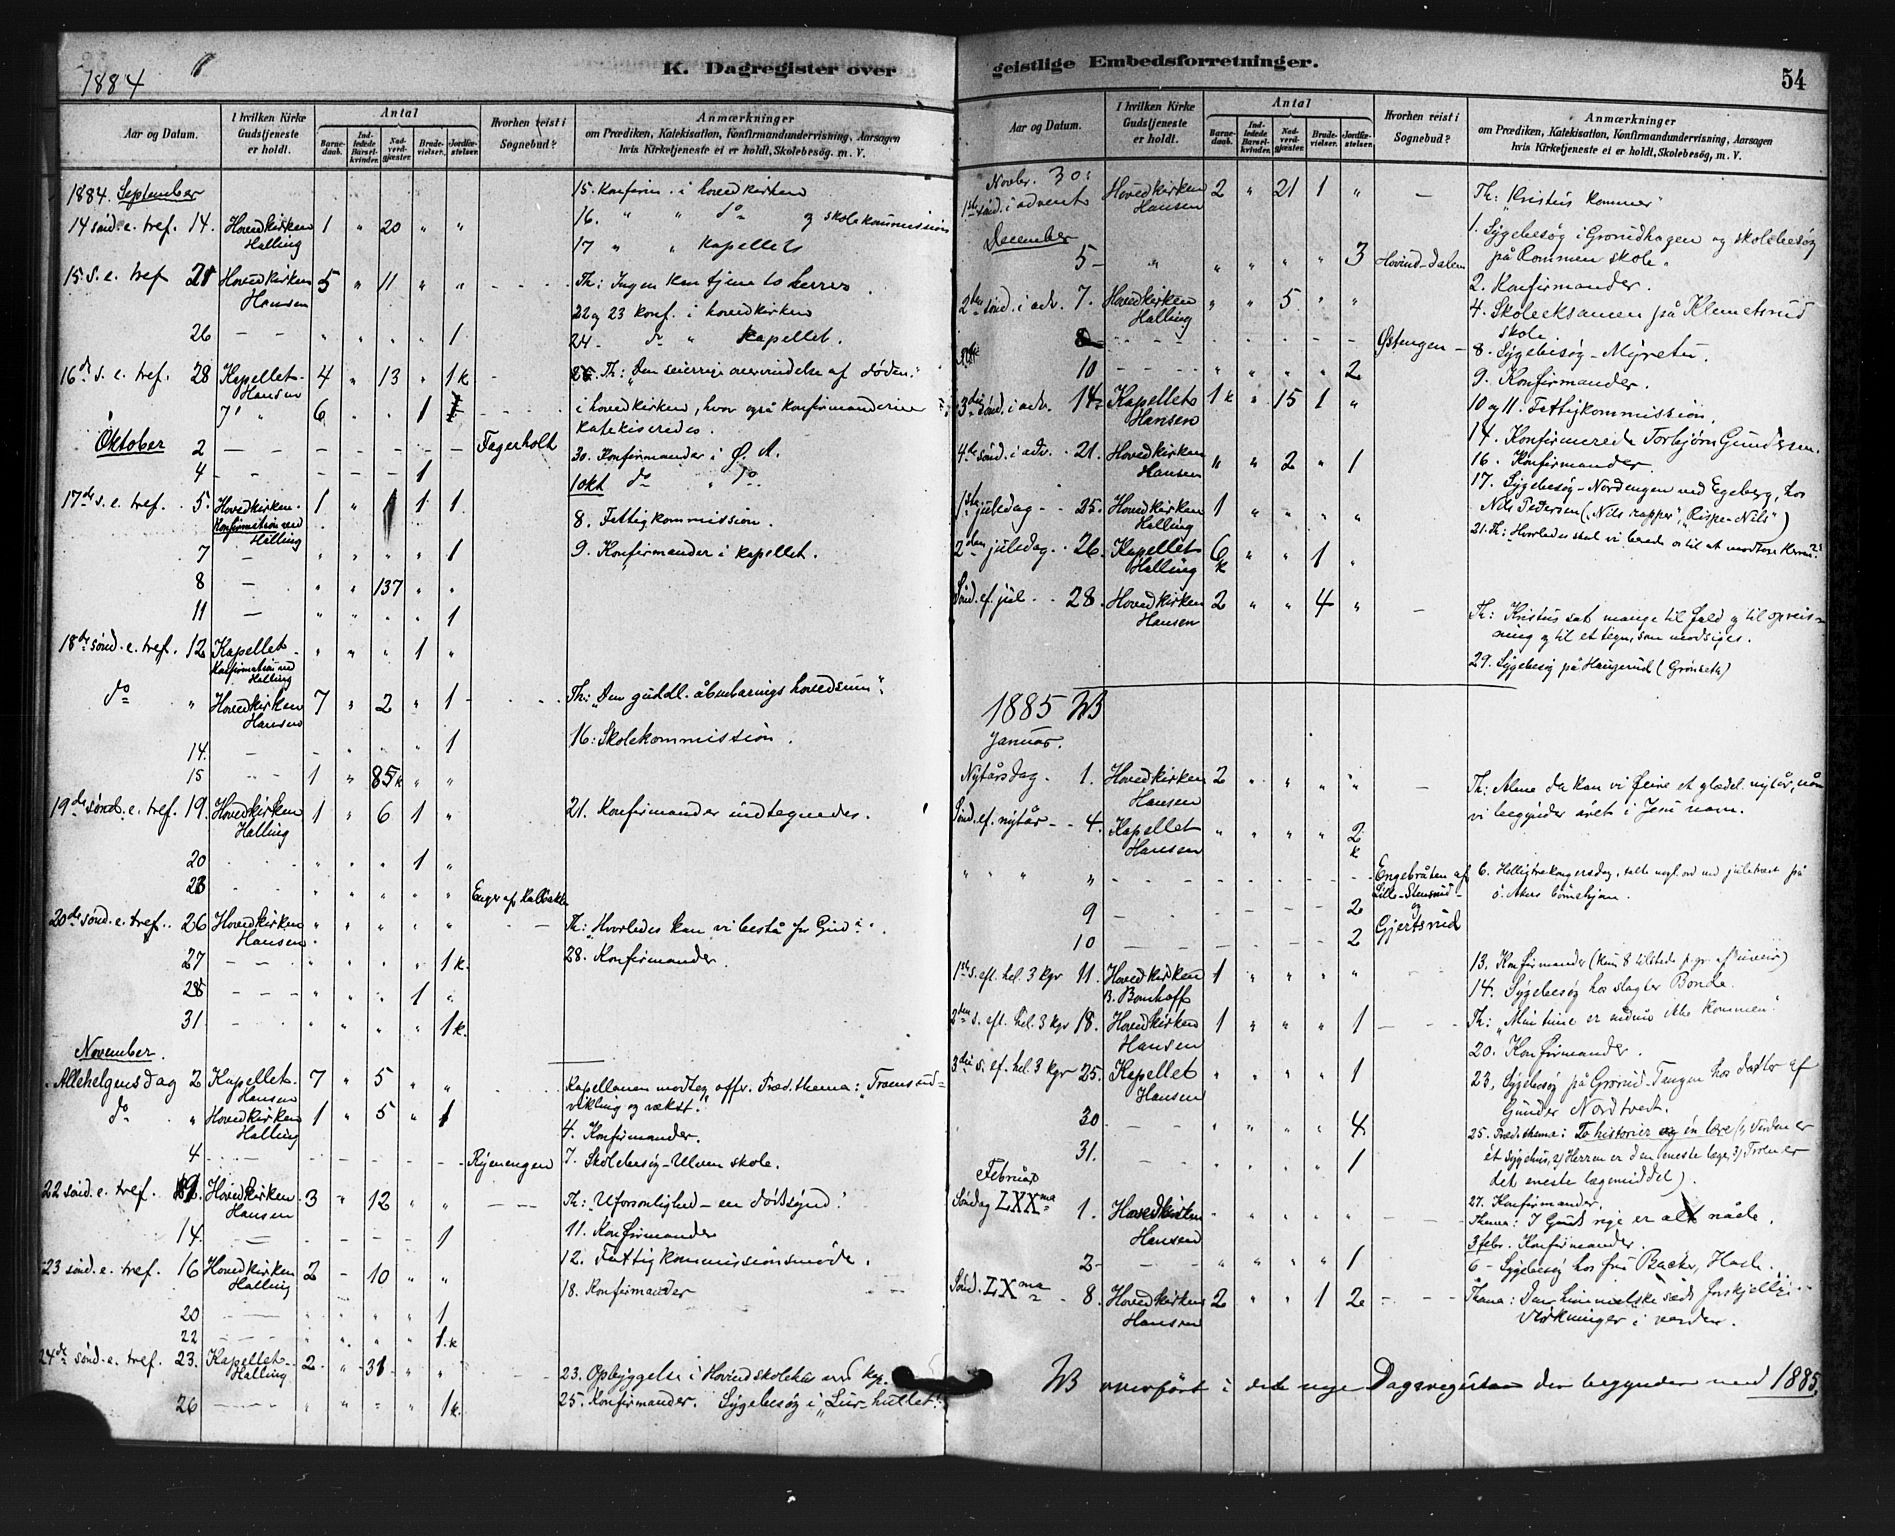 1884
K. Dagregister over
Aar og Datum.
I hvilken Kirke Gudstjeneste er holdt.
Antal
Barnedaab.
Indledede Barselkvinder.
Nadverdgjæster.
Brudevielser.
Jordfæstelser.
Hvorhen reist i Sognebud?
Anmærkninger
om Prædiken, Katekisation, Konfirmandundervisning, Aarsagen
hvis Kirketjeneste ei er holdt, Skolebesøg. m. V.
1884. September
15. Konfirm. i hovedkirken
14 sønd. e. tref. 14. Hovedkirken Halling 1 " 20 " " 16. " " do og skolekommission
17 " " Kapellets
15. s. e. tref 21 Hovedkirken Hansen 5 " 11 " " - - - Th: Ingen kan tjene to herrer.
22 og 23 konf. i hovedkirken
26 - - " " " " 1 24 - do " Kapellet.
16de s. e. tref. 28 Kapellet Hansen 4 " 13 " 1k - Th: "Den seierrige overvindelse af døden."
7' " 6 " " 1 - - - - i hovedkirken, hvor også konfirmanderne
katekiseredes.
Oktober 2 - - - - - - - Fagerholt 30. Konfirmander i Ø. A.
4 - - - - - 1 1 okt do " do
17de s. e. tref. 5. Hovedkirken. Konfirmation ved Halling 1 " 1 1 1. 8. Fattigkommission.
7 - " " " " 1 9. Konfirmander i kapellet.
8 - " " 137 " "
11 - " " " " 1
18de sønd. e. tref. 12 Kapellet. Konfirmation ved Halling " " " 1 "
do " Hovedkirken Hansen 7 " 2 " 1 - - - Th: "Den guddl. åbenbarings hovedsum".
14. - - " " " 1 16: Skolekommission.
15 - - 1 " 85k " "
19de sønd. e. tref. 19. Hovedkirken Halling 1 " 6 1 " 21. Konfirmander indtegnedes.
20 " " " 1 "
23 " " " " "
20de sønd. e. tref. 26 Hovedkirken Hansen " " " " " - - Th: "Hvorledes kan vi bestå for Gud?"
27 - - - " " " " 1k. 28. Konfirmander.
28 - - - " " " 1 "
31 - - " " " " 1k.
November.
Allehelgensdag 2 Kapellet. Hansen 7 " 5 " " - - Kapellanen modtog offr. Præd. thema: "Troens ud-
vikling og vækst."
do " Hovedkirken Halling 1 " 5 " 1 4. Konfirmander.
4 - - - - - - - Rjenengen 7. Skolebesøg - Ulven skole.
22 sønd. e. tref. 9. Hovedkirken Hansen 3 " 12 " " - - - Th: "Uforsonlighed - en dødssynd."
14. - - " " " " 1 11. Konfirmander
12. Fattigkommissionsmøde.
23 sønd. e. tref. 16 Hovedkirken Halling 2 - 10 " " 18. Konfirmander
20 - - " " " " 1
22 - - " " " " 1.k
24de sønd. e. tref. 23. Kapellet Halling 2 " 31 " " - - 23. Opbyggelse i Hovind skolehus ved kap.
26 - - - " " " " 1k. 25. Konfirmander. Sygebesøg i "Lur-huttet".
geistlige Embedsforretninger.
54
Aar og Datum.
I hvilken Kirke Gudstjeneste er holdt.
Antal
Barnedaab.
Indledede Barselkvinder.
Nadverdgjæster.
Brudevielser.
Jordfæstelser.
Hvorhen reist i Sognebud?
Anmærkninger
om Prædiken, Katekisation, Konfirmandundervisning, Aarsagen
hvis Kirketjeneste ei er holdt, Skolebesøg, m. V.
Novbr. 30:
1ste sønd. i advent Hovedkirken Hansen 2 " 21 1 " - Th: "Kristus kommer"
December
1. Sygebesøg i Grorudhagen og skolebesøg
på Rommen skole.
5 - " " " " " 3 Hovind-dalen
2. Konfirmander.
2den sønd. i adv. 7. Hovedkirken Halling " " 5 " " 4. Skoleeksamen på Klemetsrud
skole.
8 - - - - - - - - Østengen - 8. Sygebesøg - Myretu.
10 - - - - " " " " 2 9. Konfirmander.
3die sønd. i adv. 14 Kapellets Hansen 1k " 15 1 " 10 og 11. Fattigkommission.
14. Konfirmerede Torbjørn Gundersen.
4de sønd. i adv. 21. Hovedkirken Hansen " " 2 " 1 16. Konfirmander.
17. Sygebesøg - Nordengen ved Egeberg, hos
1ste juledag - 25. Hovedkirken Halling 1 " " " " Nils Pedersen ("Nils rapper", "Rispe-Nils")
21. Th: Hvorledes skal vi berede os til at modtage Herren?
2den juledag. 26. Kapellet Halling 6k " " 1 "
Sønd. ef. jul - 28. Hovedkirken Hansen 2 " " 4 " - Th: Kristus sat mange til fald og til opreis-
ning og til et tegn, som modsiges.
29. Sygebesøg på Haugerud (Grønseth)
1885
Januar.
Nytårsdag. 1. Hovedkirken Hansen 2 " " " " - Th: Alene da kan vi feire et glædel. nytår, når
vi begynder året i Jesu navn.
Sønd. ef. nytår - - 4. Kapellet Hansen " " " " 2k
" " " " - - - - - - - Engebråten af Lille-Stensrud og Gjertsrud 6. Helligtrekongersdag,
9 - - - - - - 2
10 - - - - - - 2
1ste s. eft. hel. 3 kgr 11. Hovedkirken B. Bomhoff 1 " " " " 13. Konfirmander
14. Sygebesøg hos slagter Bonde.
2den s. eft. hel. 3 kgr 18. Hovedkirken Hansen 1 " " " 1 - - Th: "Min time er endnu ikke kommen".
20. Konfirmander.
3die s. ef. hel. 3 kgr 25. Kapellet Hansen " " " " 1 23. Sygebesøg på Grorud - Tangen hos datter af
Gunder Nordtvet.
30 - - " " " " 4. 25. Præd. thema: To historier og én lære (1. Verden er
31. - - " " " " 1 ét sygehus, 2) Herren er den eneste læge, 3) Troen er
det eneste lægemiddel).
Februar
27. Konfirmander.
Søndag LXXma 1. Hovedkirken Hansen " " " " " - - Thema: I Guds rige er alt nåde.
3 febr. Konfirmander.
2 - - - " " " " 1 6 - Sygebesøg hos fru Backer, Hasle.
Sønd. LXma - 8. Hovedkirken Hansen 2 " " 1 2 - - - Thema: Den himmelske sæds forskjellige
virkninger i verden.
overført i det nye Dagsregister der begynder med 1885.